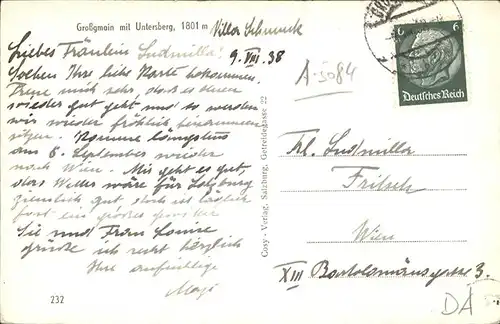 Großgmain mit Untersberg, 1801 m Villa Schmuck
Liebes Fräulein Ludmilla! 9. VIII. 38
Soeben Ihre liebe Karte bekommen.
Freue mich sehr, dass es Ihnen
wieder gut geht und so werden
wir wieder fröhlich beisammen
sitzen. Komme längstens
am 8. September wieder
nach Wien. Mir geht es gut,
das Wetter wäre für Salzburg
ziemlich gut doch ist täglich
fort ein grosses
Sie und Frau Louise
grüße ich recht herzlich
Ihre aufrichtige
Mayi
232
Cosy-Verlag, Salzburg, Getreidegasse 22
A-5084
6
Deutsches Reich
Frl. Ludmilla
Fritsch
Wien
XIII Bartolomäusgasse 3.
DA